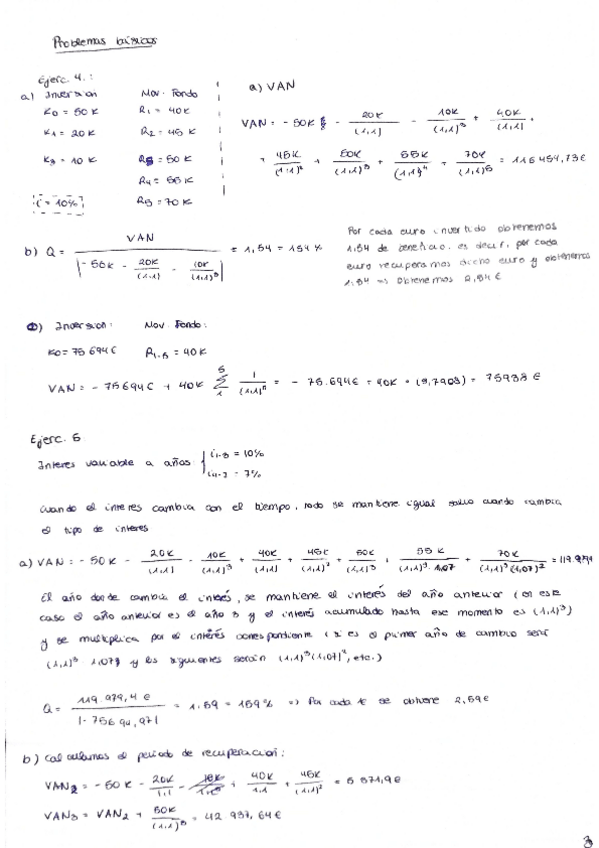 Problemas básicos
Ejerc. 4.:
a) Inversion Mov. Fondo
K0 = 50K R1 = 40K
K1 = 20K R2 = 45K
K3 = 10K R3 = 50K
R4 = 55K
i = 10% R5 = 70K
a) VAN
VAN = - 50K - 20K/(1,1) - 10K/(1,1)³ + 40K/(1,1) +
+ 45K/(1,1)² + 50K/(1,1)³ + 55K/(1,1)⁴ + 70K/(1,1)⁵ = 116 454,73€
b) Q = VAN / |-50K - 20K/(1,1) - 10K/(1,1)³| = 1,54 = 154%
Por cada euro invertido obtenemos
1,54 de beneficio, es decir, por cada
euro recuperamos dicho euro y obtenemos
1,54 => obtenemos 2,54€
Inversion: Mov. Fondo:
K0 = 75 694€ R1-5 = 40K
VAN = - 75694€ + 40K 5 Σ 1 1/(1,1)⁵ = - 75.694€ + 40K · (3,7908) = 75938€
Ejerc. 5
Interes variable a años { i1-3 = 10%
i4-7 = 7%
cuando el interes cambia con el tiempo, todo se mantiene igual salvo cuando cambia
el tipo de interes
a) VAN = - 50K - 20K/(1,1) - 10K/(1,1)³ + 40K/(1,1) + 45K/(1,1)² + 50K/(1,1)³ + 55K/(1,1)³·1,07 + 70K/(1,1)³(1,07)² = 119.979
El año donde cambia el interés, se mantiene el interés del año anterior (en este
caso el año anterior es el año 3 y el interés acumulado hasta ese momento es (1,1)³)
y se multiplica por el interés correspondiente (si es el primer año de cambio será
(1,1)³ 1,07 y los siguientes serán (1,1)³(1,07)², etc.)
Q = 119.979,4€ / |-75694,97| = 1,59 = 159% => Por cada € se obtiene 2,59€
b) Calculamos el periodo de recuperacion:
VAN2 = - 50K - 20K/1,1 - 10K/1,1³ + 40K/1,1 + 45K/(1,1)² = 5 371,9€
VAN3 = VAN2 + 50K/(1,1)³ = 42 937,64€
3